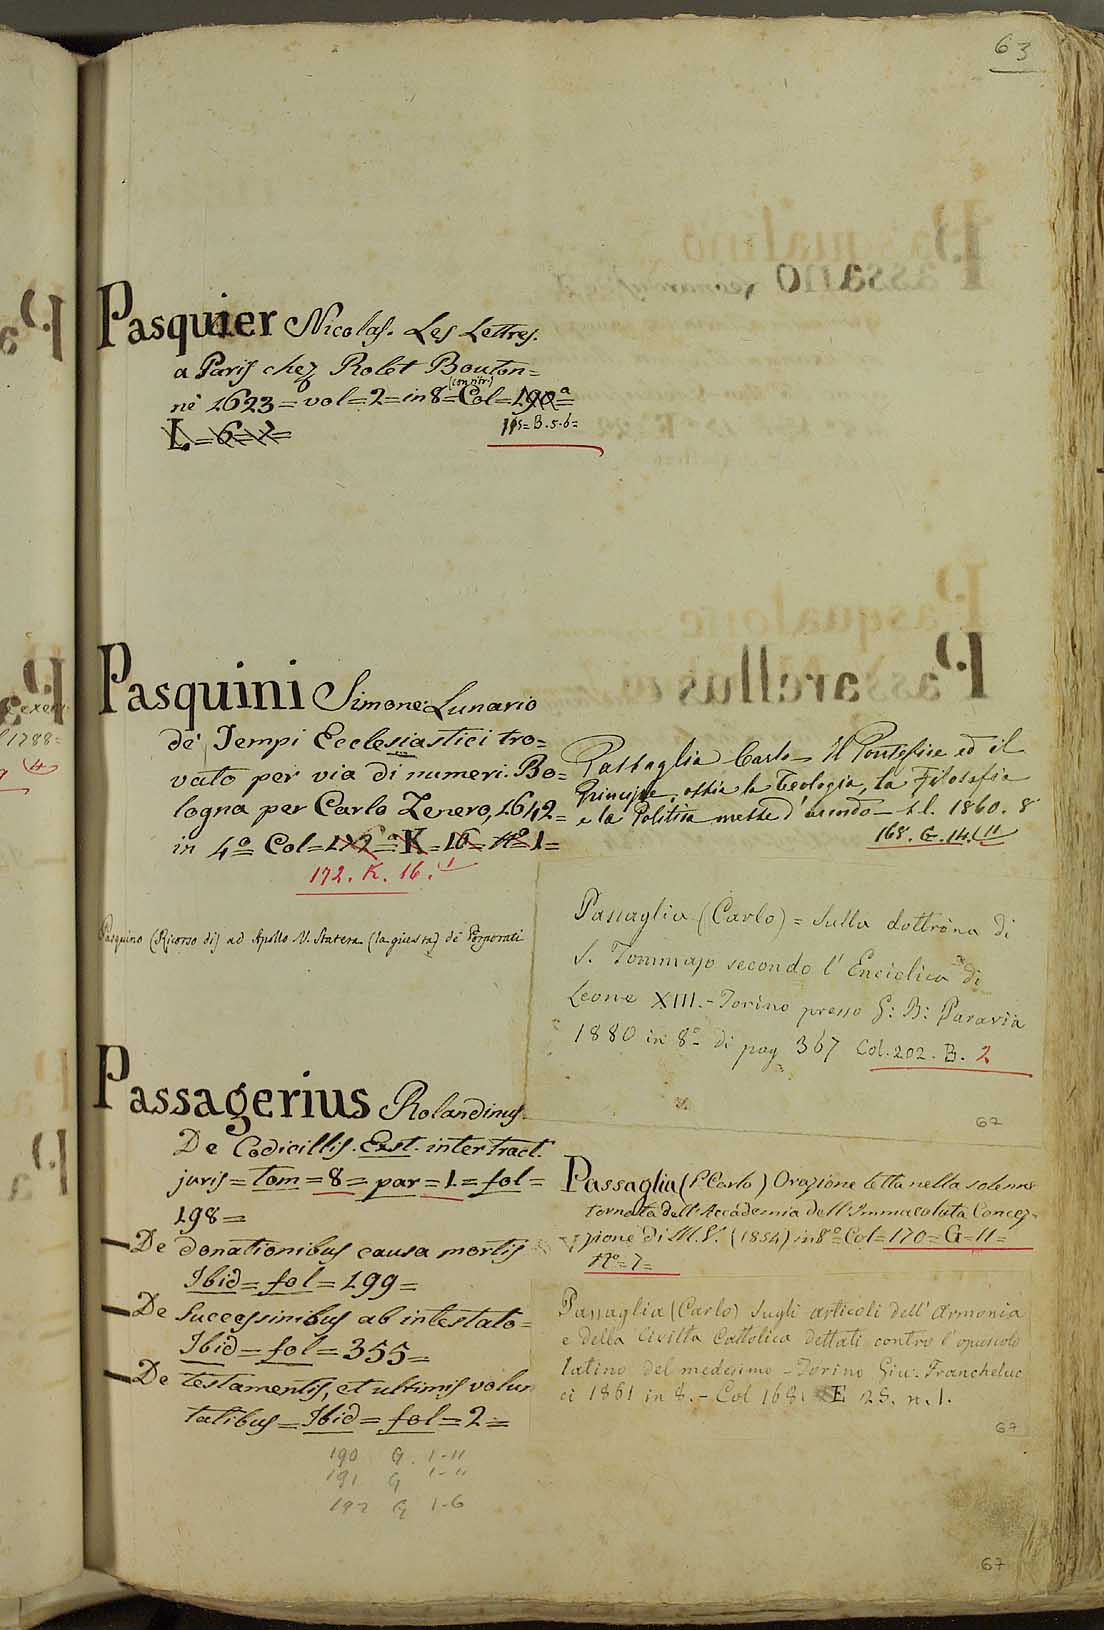 63
Pasquier Nicolas. Les Lettres.
a Paris chez Robt Bouton=
nè 1623= vol=2=in 8=Col=190ª=
L=6=
B.5.6=
Pasquini Simone: Lunario
de' Tempi Ecclesiastici tro=
vato per via di numeri. Bo=
logna per Carlo Zenero, 1642=
in 4º Col=172ª=K=16=nº 1=
172. K. 16. 1
Pasquino (Ricorso di) ad Apollo V. Statera (la giusta) de' Porporati
Passagerius Rolandinus.
De Codicillis. Exst. inter tract.
juris=tom=8=par=1=fol=
198=
De donationibus causa mortis
Ibid=fol=199=
De successionibus ab intestato=
Ibid=fol=355=
De testamentis, et ultimis volun
tatibus=Ibid=fol=2=
190 G. 1-11
191 G 1-11
192 G 1-6
Passaglia Carlo - Il Pontefice ed il
Principe, ossia la Teologia, la Filosofia
e la Politica messe d'accordo - s.l. 1860. 8
168. G. 14. (11
Passaglia (Carlo) = Sulla dottrina di
S. Tommaso secondo l'Enciclica di
Leone XIII.- Torino presso G: B: Paravia
1880 in 8º di pag 367 Col. 202. B. 2
67
Passaglia (P. Carlo) Orazione letta nella solenne
tornata dell'Accademia dell'Immacolata Concez=
zione di M.V. (1854) in 8º Col=170=G=11=
nº=7=
Passaglia (Carlo) Sugli articoli dell'Armonia
e della Civiltà Cattolica dettati contro l'opuscolo
latino del medesimo - Torino Giu. Francheluc
ci 1861 in 8.- Col 168. E 28. n. 1.
67
67